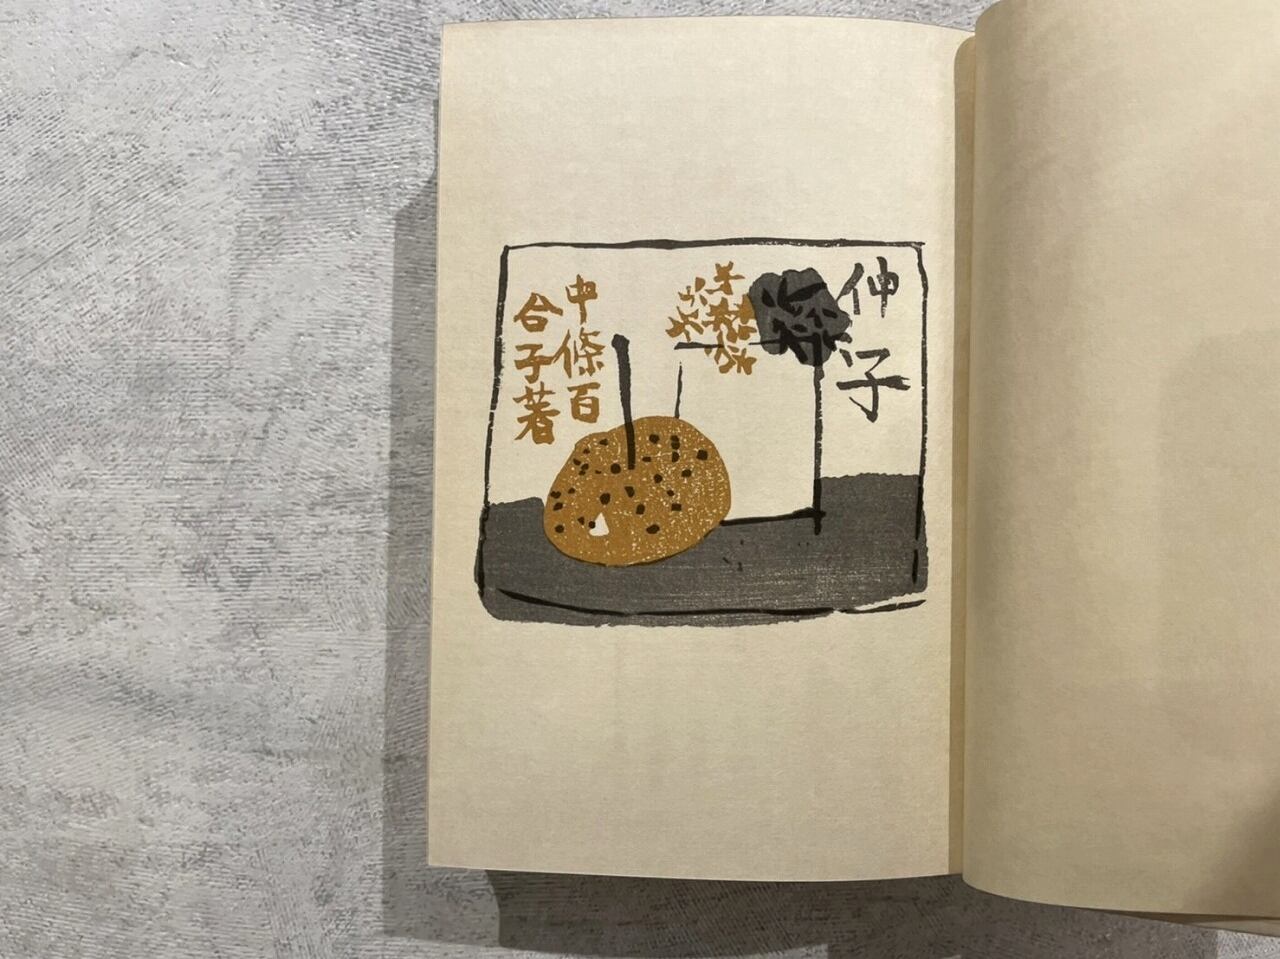 伸子
中條百
合子著